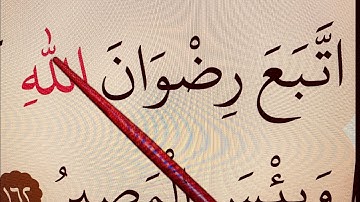 اتَّبَعَ رِضْوَانَ اللَّهِ
وَبِئْسَ الْمَصِيرُ ١٦٢